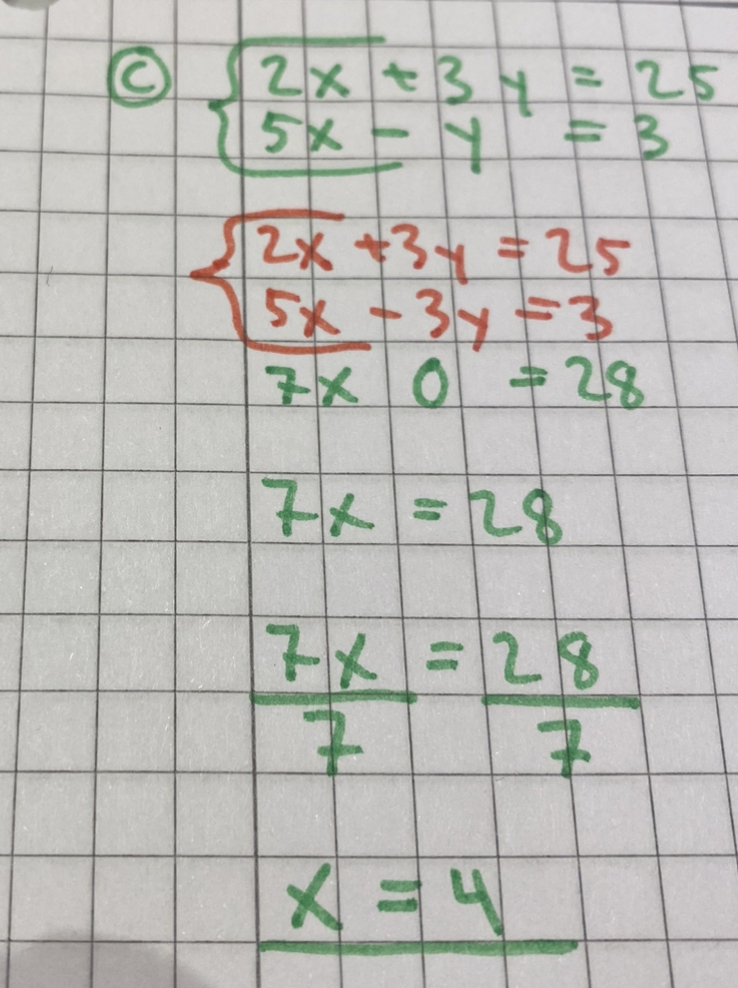 c 2x + 3y = 25
5x - y = 3
2x + 3y = 25
5x - 3y = 3
7x 0 = 28
7x = 28
7x = 28
7 7
x = 4